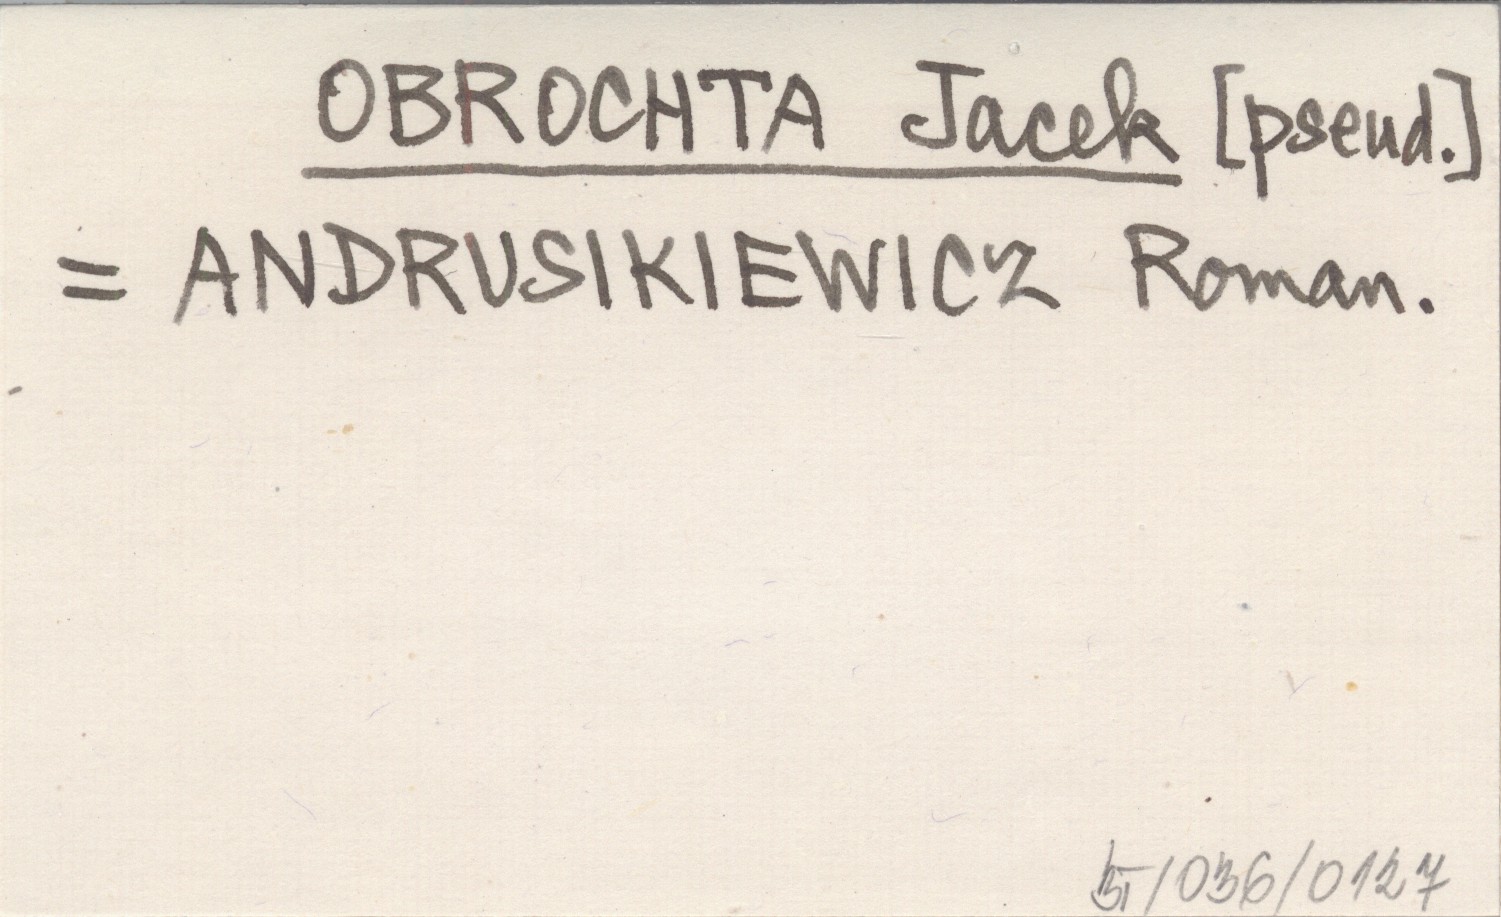 OBROCHTA Jacek [pseud.]
= ANDRUSIKIEWICZ Roman.
/036/0127